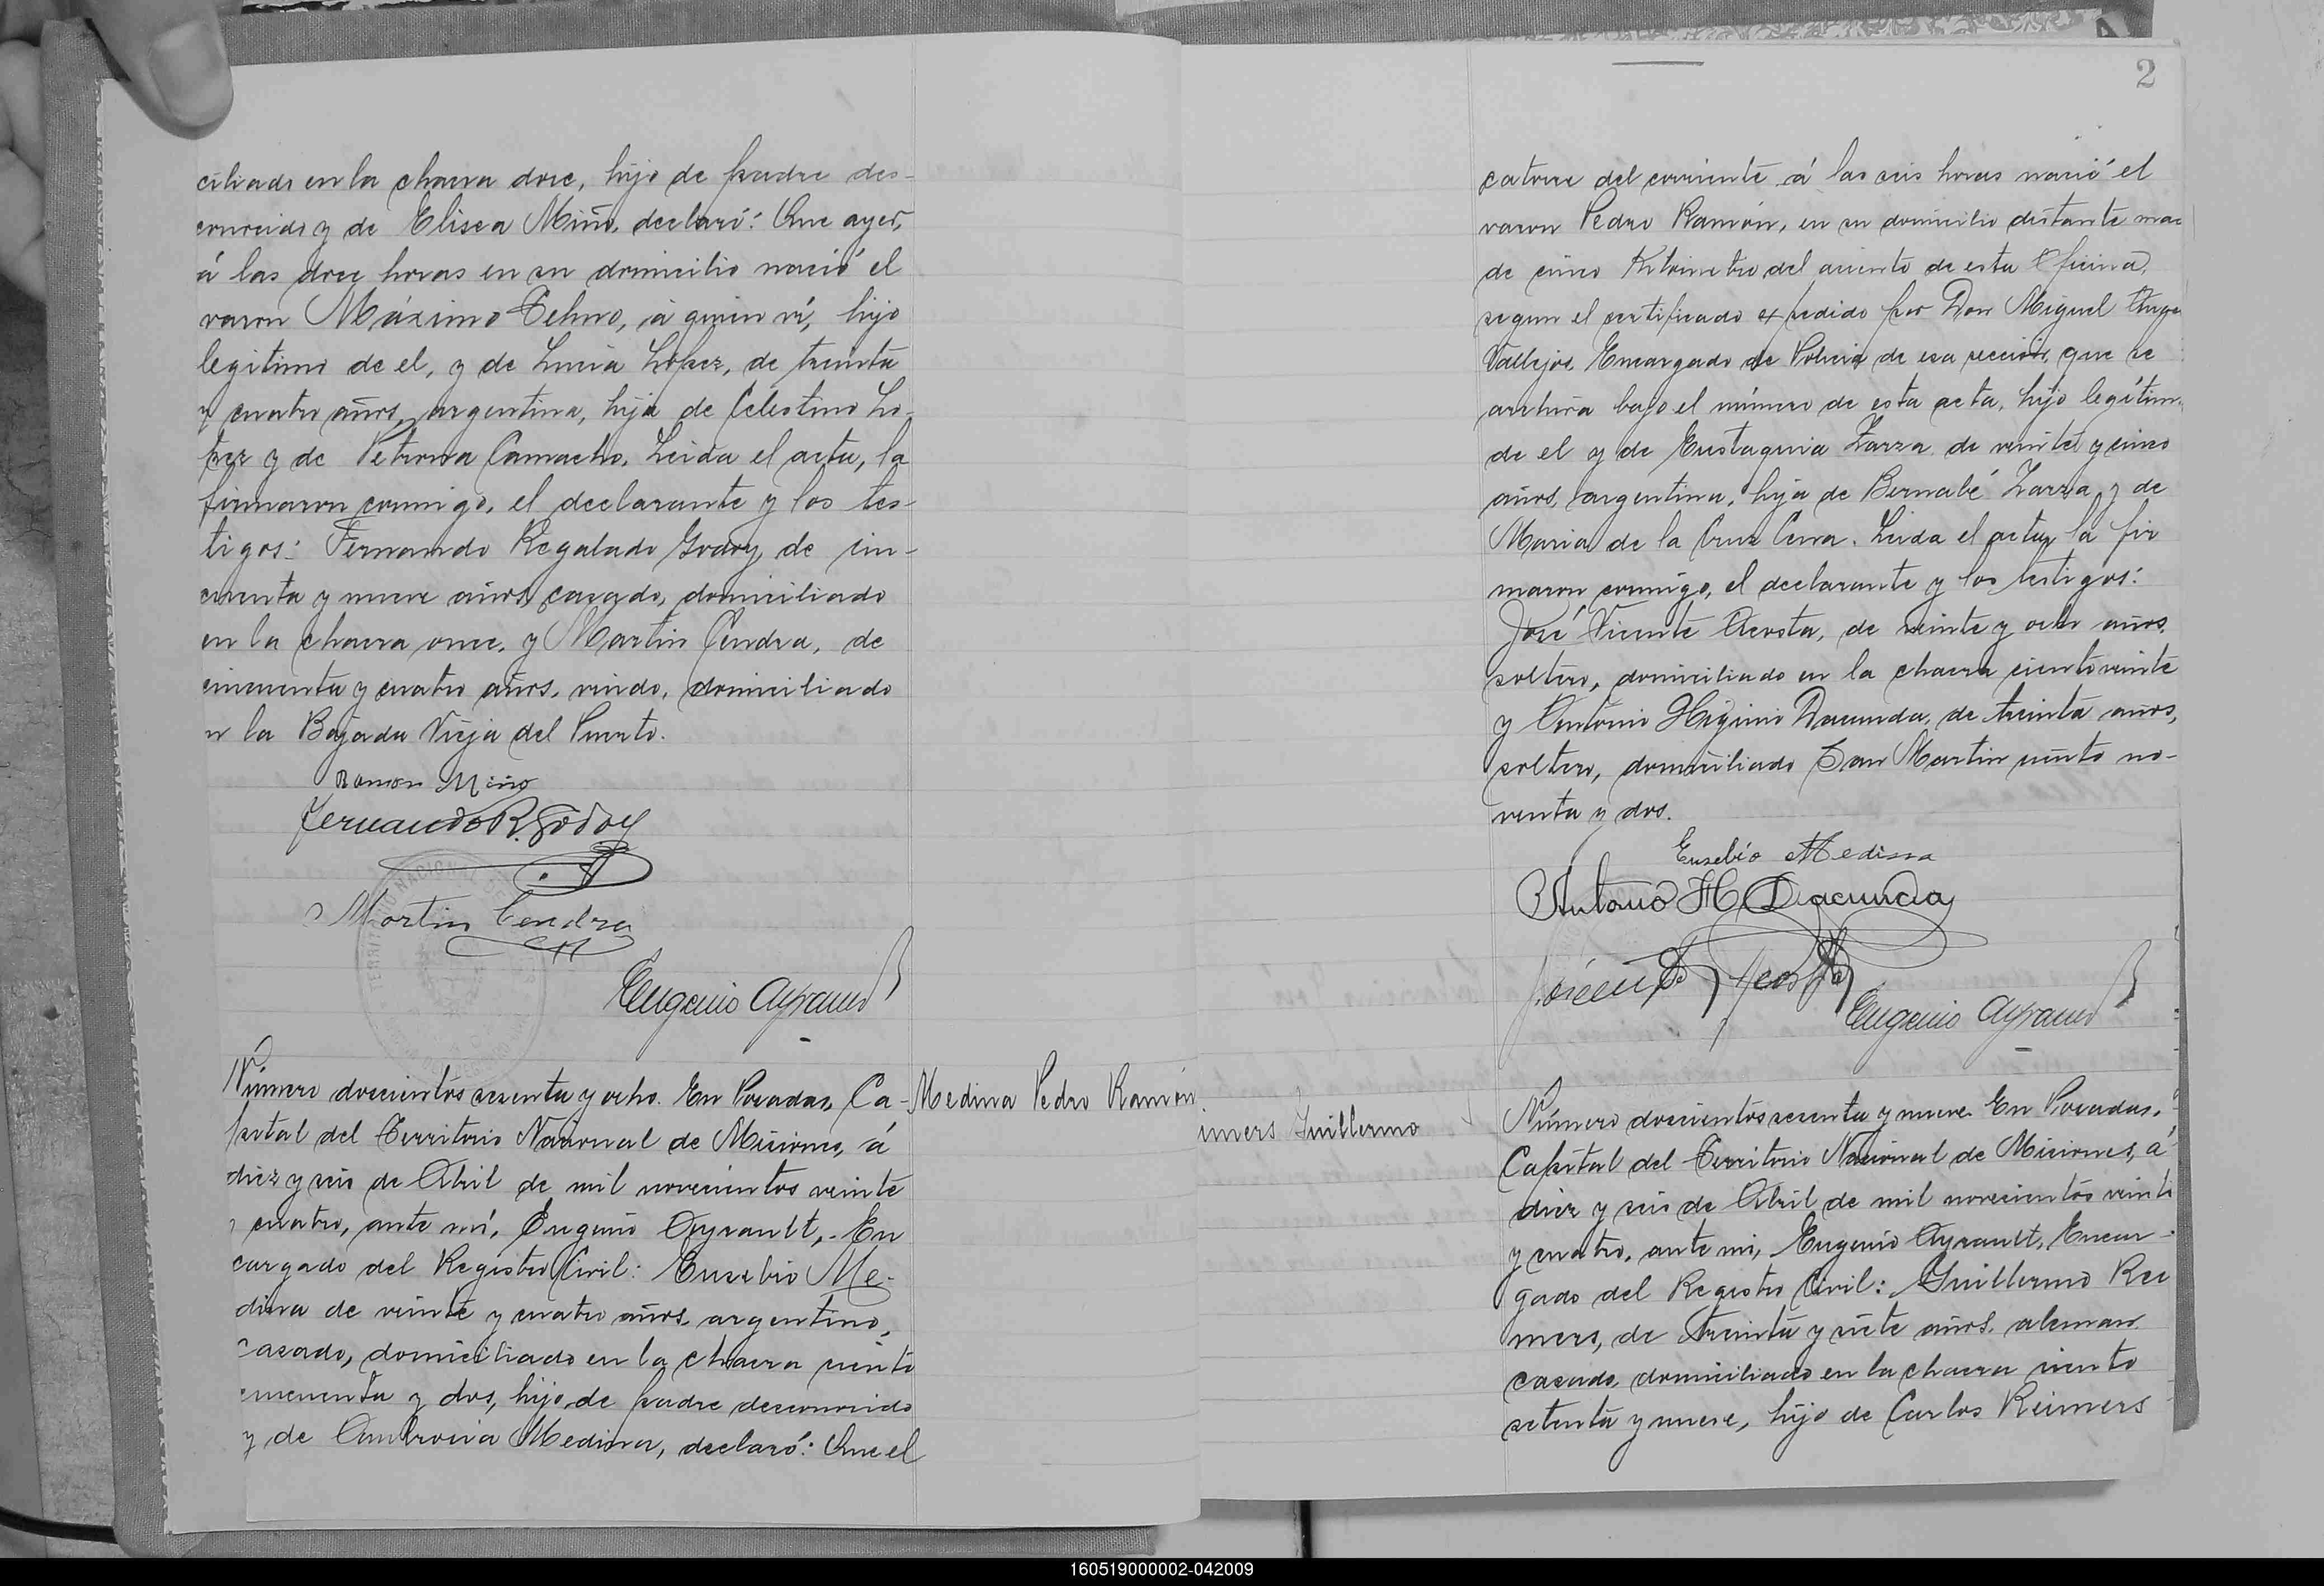 ciliado en la chacra doce, hijo de padre des-
conocido y de Elisea Miño, declaró: Que ayer,
á las doce horas en su domicilio nació el
varon Máximo Telmo, á quien ví, hijo
legitimo de el, y de Lucia Lopez, de treinta
y cuatro años, argentina, hija de Celestino Lo-
pez y de Petrona Camacho. Leida el acta, la
firmaron conmigo, el declarante y los tes-
tigos: Fernando Regalado Godoy, de cin-
cuenta y nueve años, casado, domiciliado
en la chacra once, y Martin Cendra, de
cincuenta y cuatro años, viudo, domiciliado
n la Bajada Vieja del Puerto.
Ramon Miño
Fernando R. Godoy
Martin Cendra
Eugenio Ayrault
Número doscientos sesenta y ocho. En Posadas, Ca-
pital del Territorio Nacional de Misiones, á
diez y seis de Abril de mil novecientos veinte
y cuatro, ante mí, Eugenio Ayrault, En
cargado del Registro Civil: Eusebio Me-
dina de veinte y cuatro años, argentino,
casado, domiciliado en la chacra ciento
cincuenta y dos, hijo de padre desconocido
y de Ambrosia Medina, declaró: Que el
Medina Pedro Ramón
2
catorce del corriente á las seis horas nació el
varon Pedro Ramón, en su domicilio distante mas
de cinco Kilometro del asiento de esta Oficina,
segun el certificado expedido por Don Miguel Ange
Vallejos, Encargado de Policia de esa seccion, que se
archiva bajo el número de esta acta, hijo legítim
de el y de Eustaquia Zarza de veinte y cinco
años, argentina, hija de Bernabé Zarza y de
Maria de la Cruz Cerra. Leida el acta, la fir
maron conmigo, el declarante y los testigos:
José Vicente Acosta, de veinte y ocho años,
soltero, domiciliado en la chacra ciento veinte
y Antonio Higinio Dacunda, de treinta años,
soltero, domiciliado San Martin ciento no-
venta y dos.
Eusebio Medina
Antonio H Dacunda
Acosta
Eugenio Ayrault
imers Guillermo
Número doscientos sesenta y nueve. En Posadas,
Capital del Territorio Nacional de Misiones, á
diez y seis de Abril de mil novecientos veinte
y cuatro, ante mi, Eugenio Ayrault, Encar-
gado del Registro Civil: Guillermo Rei
mers, de treinta y siete años, aleman
casado, domiciliado en la chacra ciento
setenta y nueve, hijo de Carlos Reimers
160519000002-042009